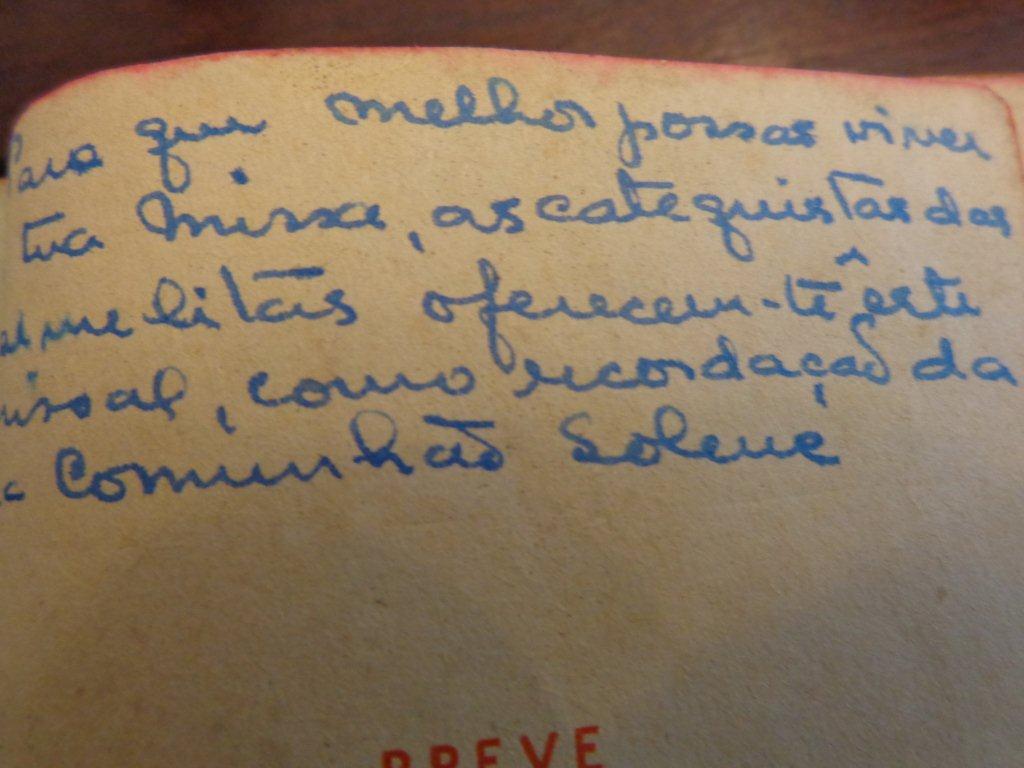 Para que melhor possas viver
tua Missa, as catequistas das
armelitas oferecem-te êste
missal, como recordação da
a Comunhão Solene
BREVE